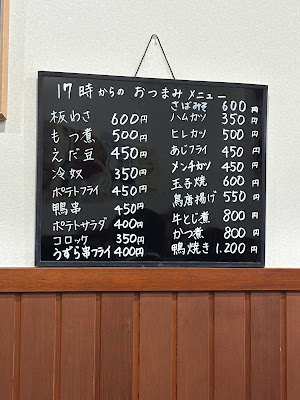 17時からの おつまみ メニュー
板わさ 600円
もつ煮 500円
えだ豆 450円
冷奴 350円
ポテトフライ 450円
鴨串 450円
ポテトサラダ 400円
コロッケ 350円
うずら串フライ 400円
さばみそ 600円
ハムカツ 350円
ヒレカツ 500円
あじフライ 450円
メンチカツ 450円
玉子焼 600円
鳥唐揚げ 550円
牛とじ煮 800円
かつ煮 800円
鴨焼き 1.200円